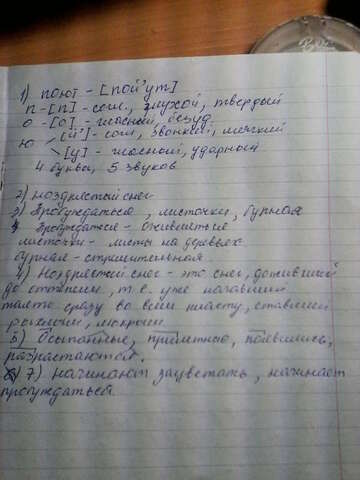 1) поют - [пой'ут]
п - [п] - согл., глухой, твердый
о - [о] - гласный, безуд.
ю [й'] - согл., звонкий, мягкий
[у] - гласный, ударный
4 буквы, 5 звуков
2) Ноздристый снег
3) Пробуждаться, листочки, бурная
Пробуждаться - оживляться
листочки - листы на деревьях
бурная - стремительная.
4) Ноздристый снег - это снег, доживший
до оттепели, т.е. уже начавший
таять сразу во всем пласту, ставший
рыхлым, мокрым
5) Осыпанные, приметно, появились,
разрастаются.
7) начинают зацветать, начинает
пробуждаться